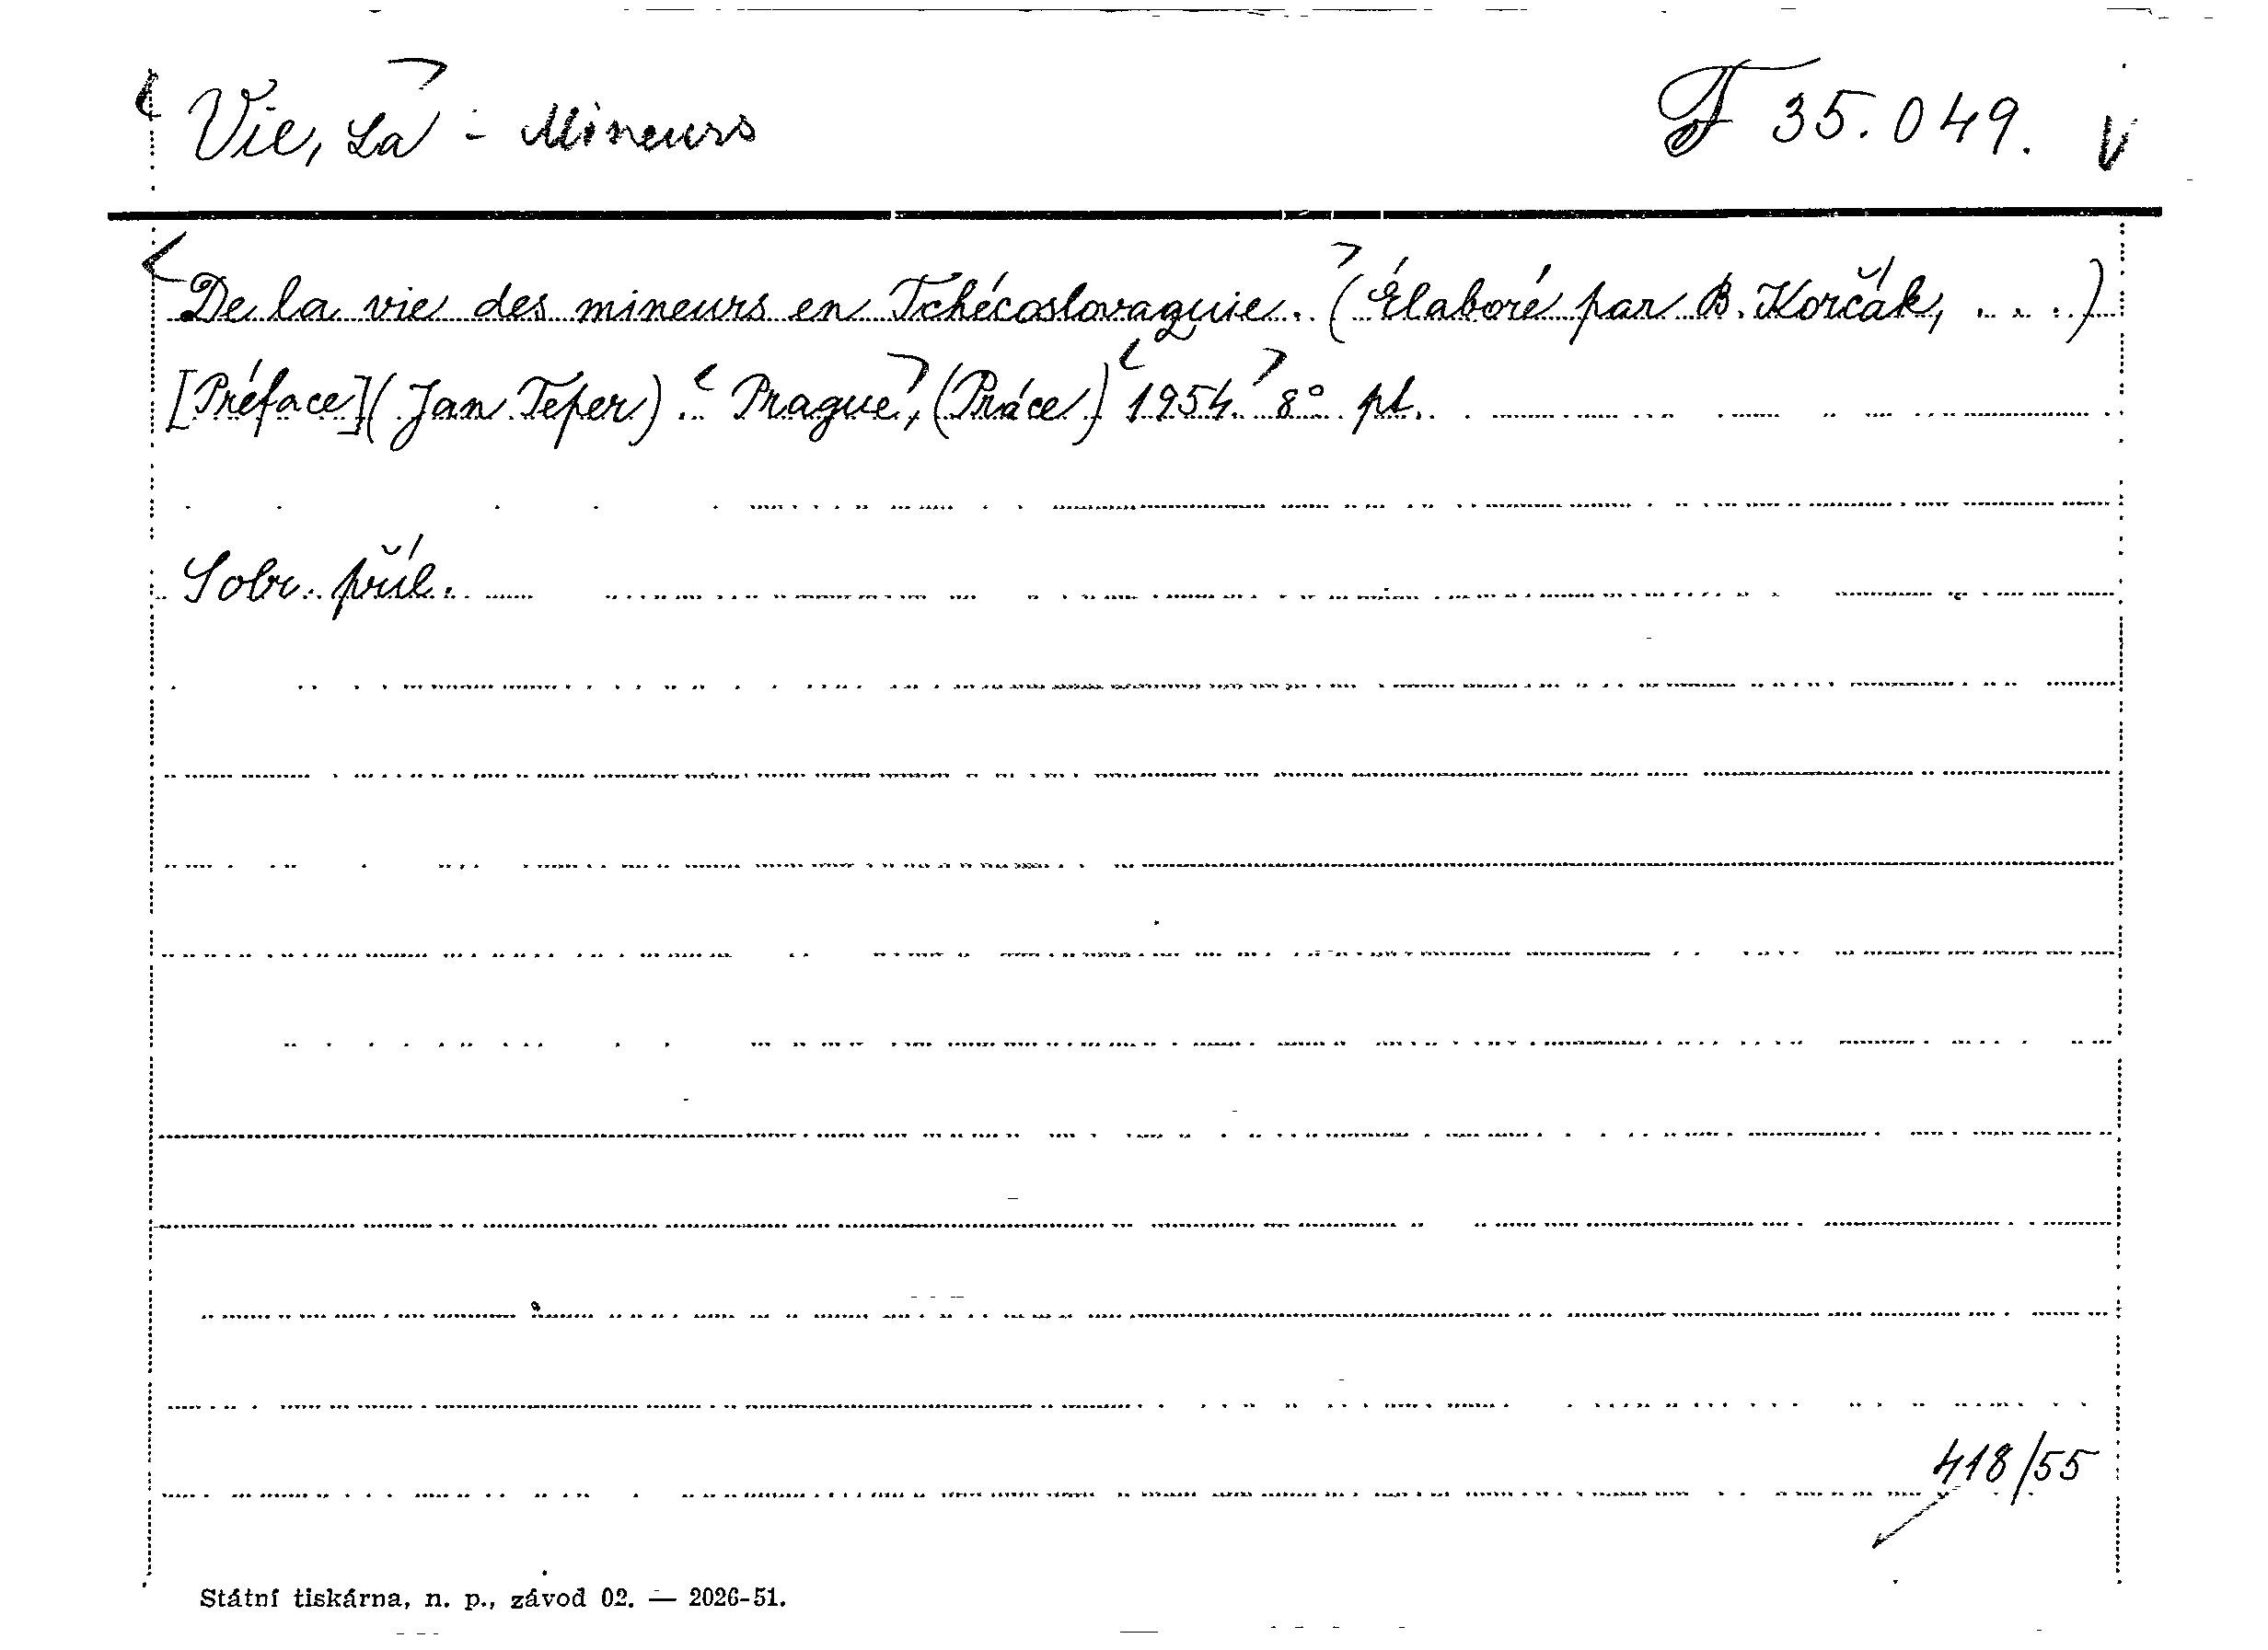 Vie, La - Mineurs F 35.049. V
De la vie des mineurs en Tchécoslovaquie. (Élaboré par B. Korčák, ...)
[Préface] (Jan Teper). Prague, (Práce) 1954. 8° pl.
Sobr. příl.
418/55
Státní tiskárna, n. p., závod 02. — 2026-51.